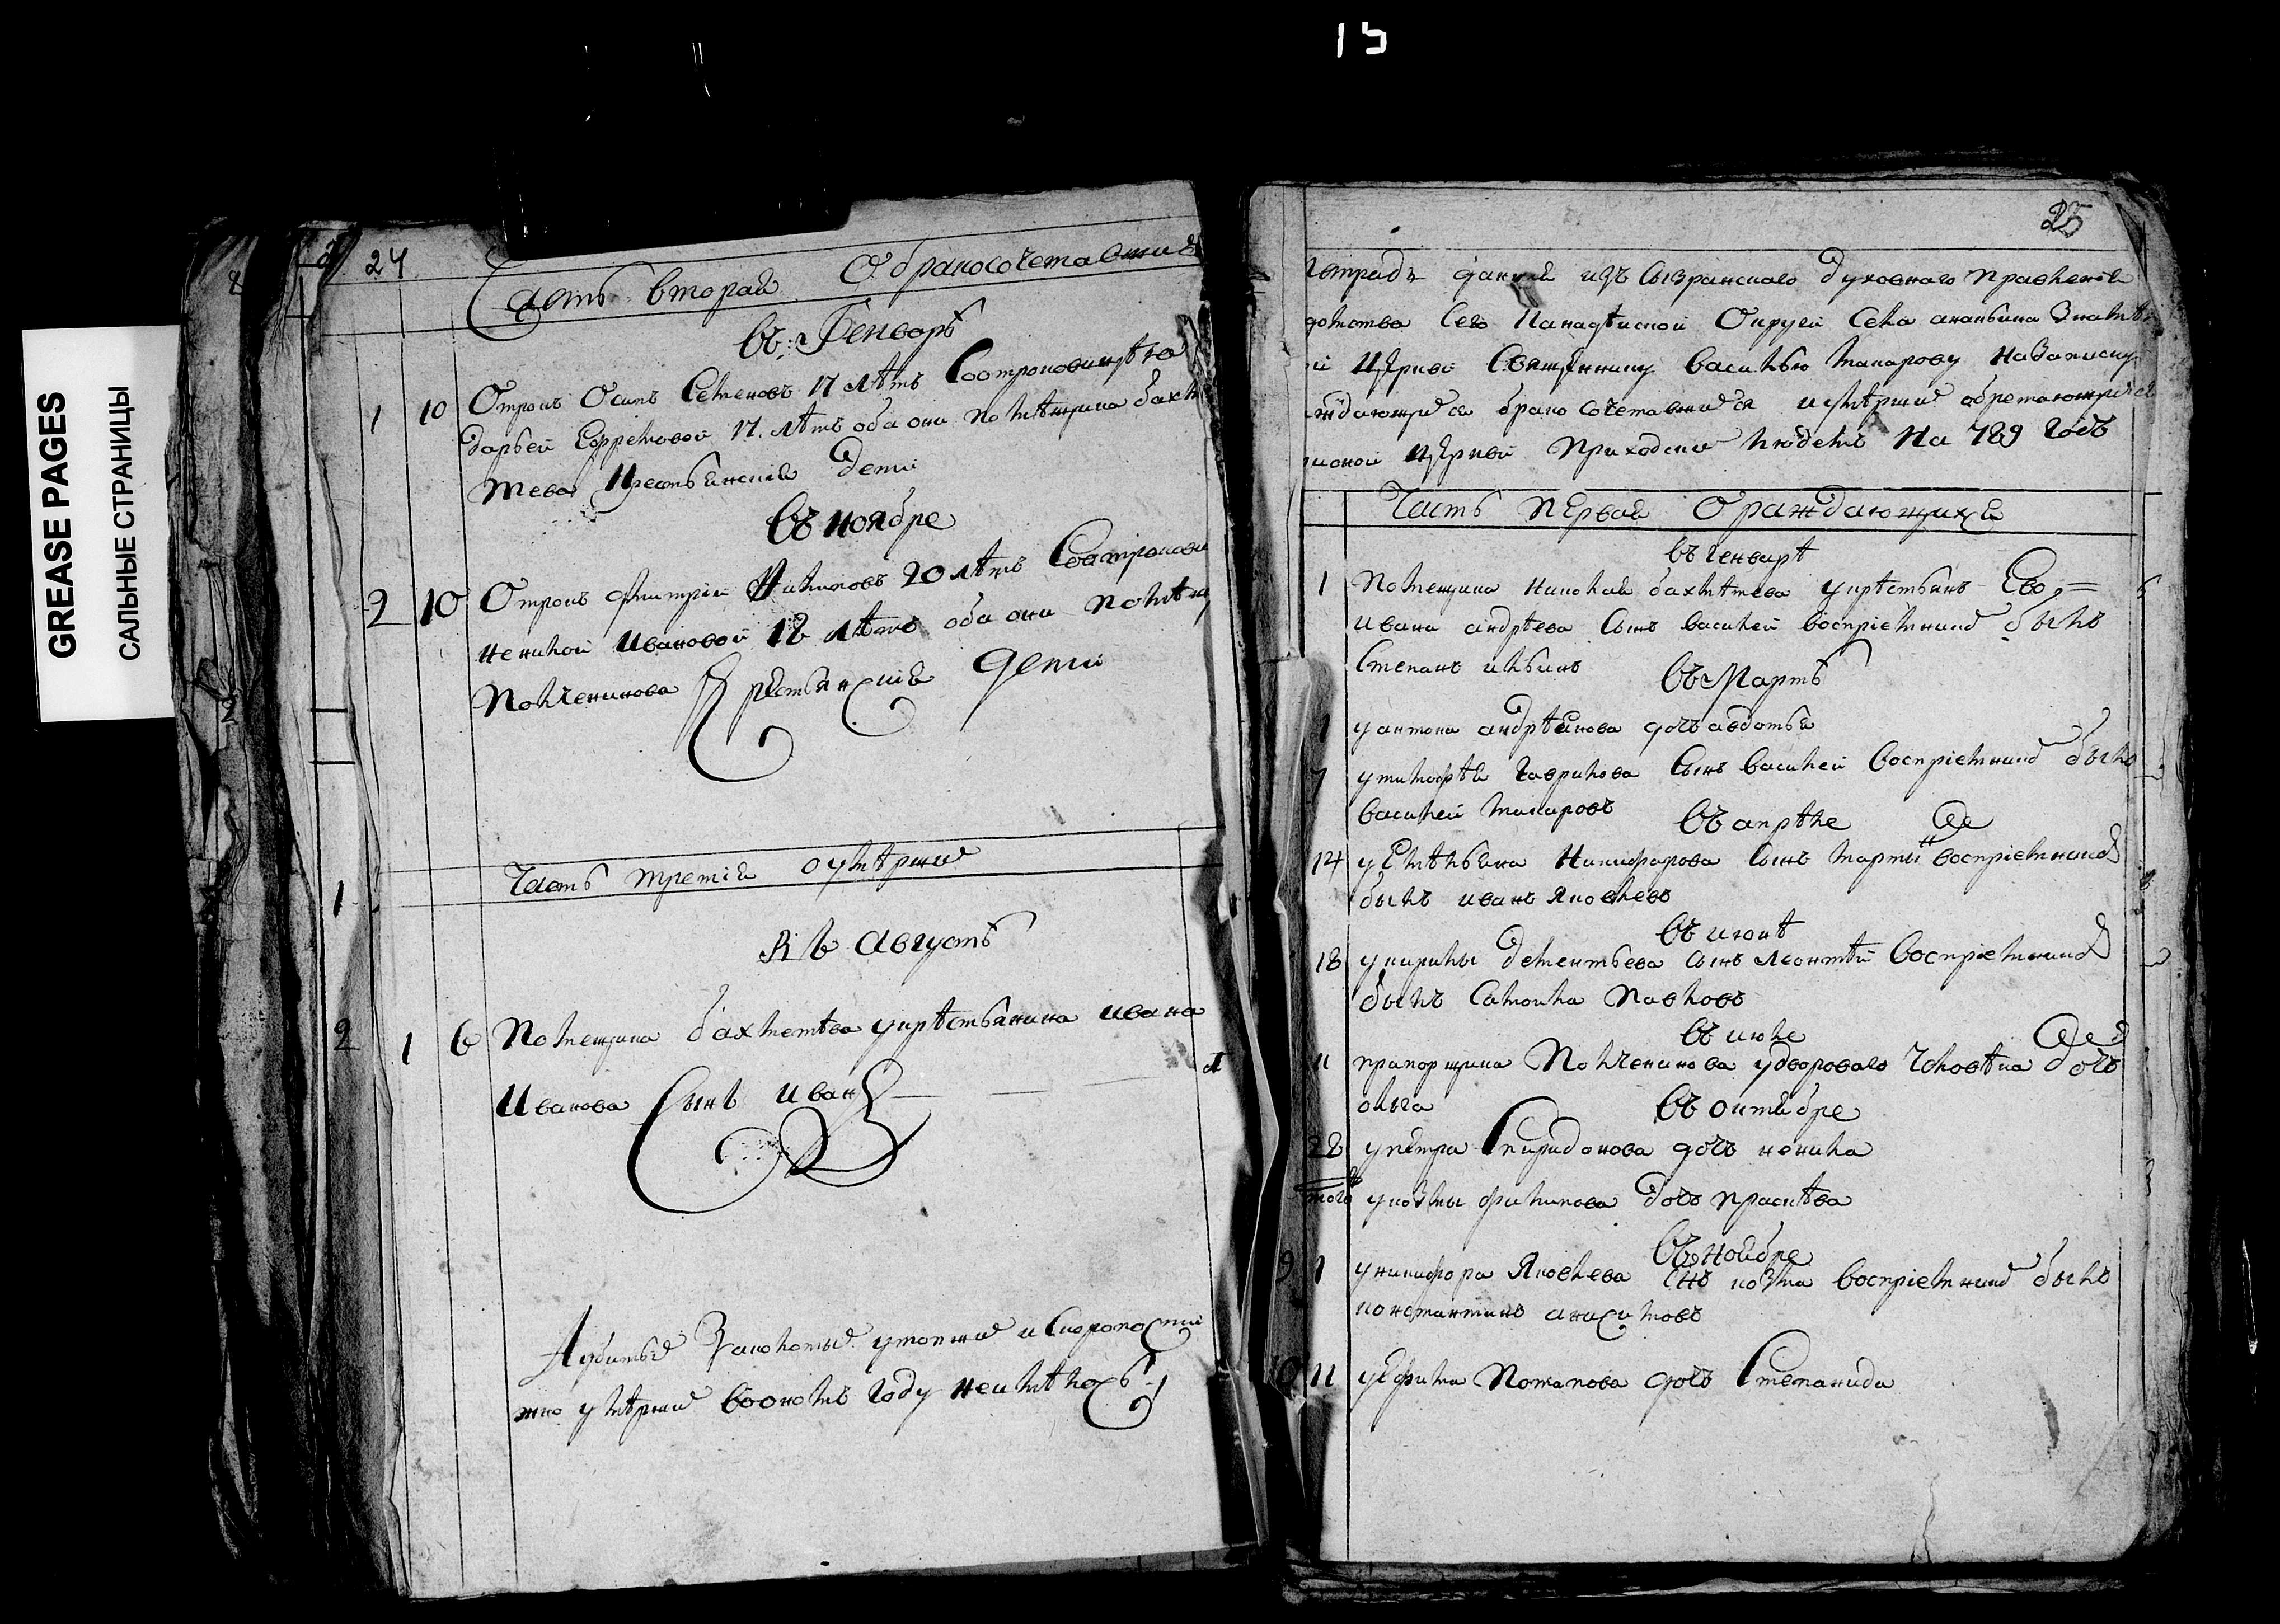 15
GREASE PAGES
САЛЬНЫЕ СТРАНИЦЫ
24
Часть вторая О бракосочетавшихся
Въ Генварѣ
1 10 Отрокъ Осипъ Семеновъ 17 лѣтъ Соотроковицѣю
Дарьей Ефремовой 17. лѣтъ оба они помѣщика Бахме
тева Крестьянские дети
Въ Ноябре
2 10 Отрокъ Дмитрей 20 лѣтъ Соотрокови
Ивановой 18 лѣтъ оба они помѣщ
Крестьянские Дети
Часть третия о умѣрших
Въ Августѣ
1 6 Помещика Бахметѣва укрѣстьянина Ивана
Иванова Сынъ Иванъ
Аубитых Заколотых утопших и Скоропости
жно умѣрших Воономъ Году Неимѣлось
25
тетрадь данная изъ Сызранскаго духовнаго правления
Канадѣиской Округи Села Ананьина
Церкви Священнику Василью Макарову Назаписку
раждающихся бракосочетавшихся иумѣрших обретающихся
Церкви Приходских людемъ На 789 Годъ
Часть Первая О раждающихся
въ Генварѣ
1 Помещика Николая Бахмѣтева укрѣстьянъ Ево
Ивана Андрѣева Сынъ Василей Воспрiемник былъ
Степанъ Ильинъ
Въ Мартѣ
1 уантона Андрѣянова дочь Авдотья
7 утимофѣя Гаврилова Сынъ Василей Воспрiемник былъ
Василей Макаровъ
Въ апрѣле
14 уЕмѣльяна Никифарова Сынъ Мартын Воспрiемник
былъ Иванъ Яковлевъ
Въ июнѣ
18 укирилы Дементьева Сынъ Леонтѣй Воспрiемник
былъ Самойла Павловъ
Въ июле
11 прапорщика удвороваго Человѣка дочь
Ольга
Въ Октябре
28 упетра Спиридонова дочь
того укозмы Филипова дочь Прасковѣа
Въ Ноябре
9 1 уникифора Яковлева Снъ Козма Воспрiемник былъ
Константинъ Анисимовъ
10 11 уЕфима Потапова дочь Степанида